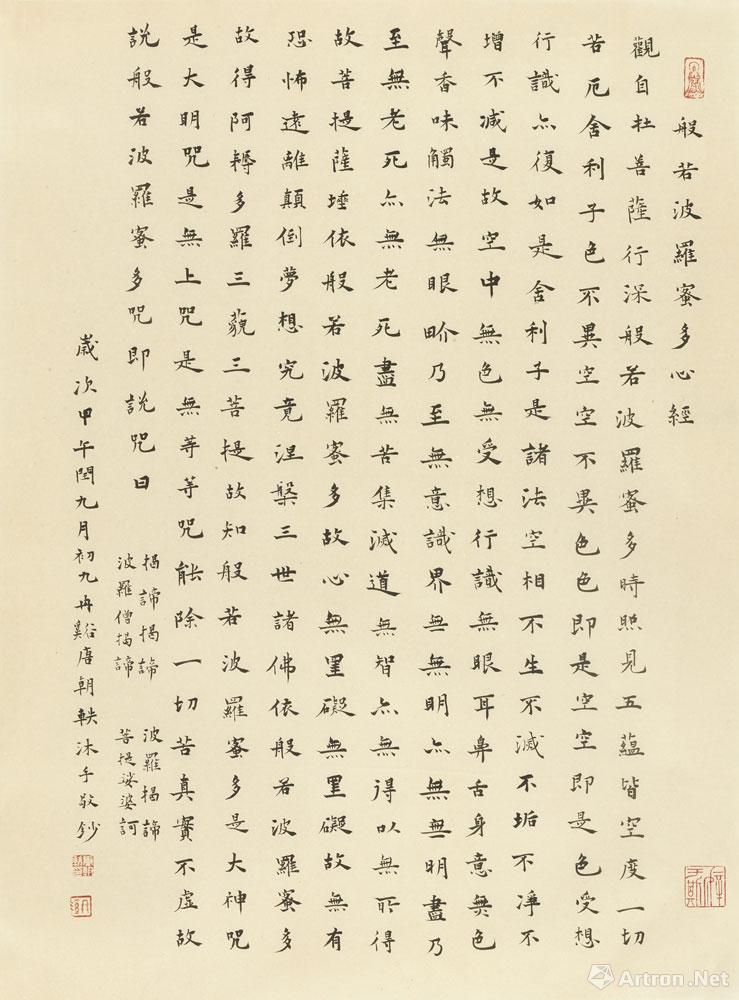 般若波羅蜜多心經
觀自在菩薩行深般若波羅蜜多時照見五蘊皆空度一切
苦厄舍利子色不異空空不異色色即是空空即是色受想
行識亦復如是舍利子是諸法空相不生不滅不垢不淨不
增不減是故空中無色無受想行識無眼耳鼻舌身意無色
聲香味觸法無眼界乃至無意識界無無明亦無無明盡乃
至無老死亦無老死盡無苦集滅道無智亦無得以無所得
故菩提薩埵依般若波羅蜜多故心無罣礙無罣礙故無有
恐怖遠離顛倒夢想究竟涅槃三世諸佛依般若波羅蜜多
故得阿耨多羅三藐三菩提故知般若波羅蜜多是大神咒
是大明咒是無上咒是無等等咒能除一切苦真實不虛故
說般若波羅蜜多咒即說咒曰
揭諦揭諦 波羅揭諦
波羅僧揭諦 菩提娑婆訶
歲次甲午閏九月初九冉谿唐朝軼沐手敬鈔
Artron.Net